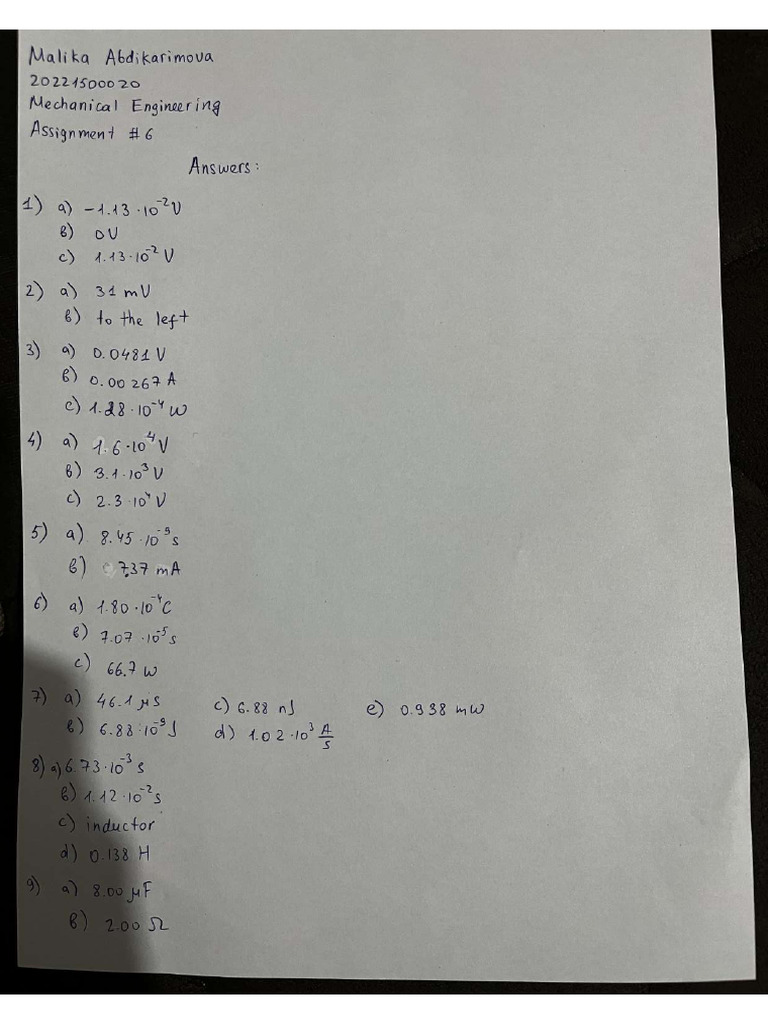 Malika Abdikarimova
20221500020
Mechanical Engineering
Assignment #6
Answers:
1) a) -1.13·10⁻² V
б) 0V
c) 1.13·10⁻² V
2) a) 31 mV
б) to the left
3) a) 0.0481 V
б) 0.00267 A
c) 1.28·10⁻⁴ W
4) a) 1.6·10⁴ V
б) 3.1·10³ V
c) 2.3·10⁴ V
5) a) 8.45·10⁻⁹ s
б) 7.37 mA
6) a) 1.80·10⁻⁴ C
б) 7.07·10⁻⁵ s
c) 66.7 W
7) a) 46.1 μs c) 6.88 nJ e) 0.938 mW
б) 6.88·10⁻⁹ J d) 1.02·10³ A/s
8) a) 6.73·10⁻³ s
б) 1.12·10⁻² s
c) inductor
d) 0.138 H
9) a) 8.00 μF
б) 2.00 Ω